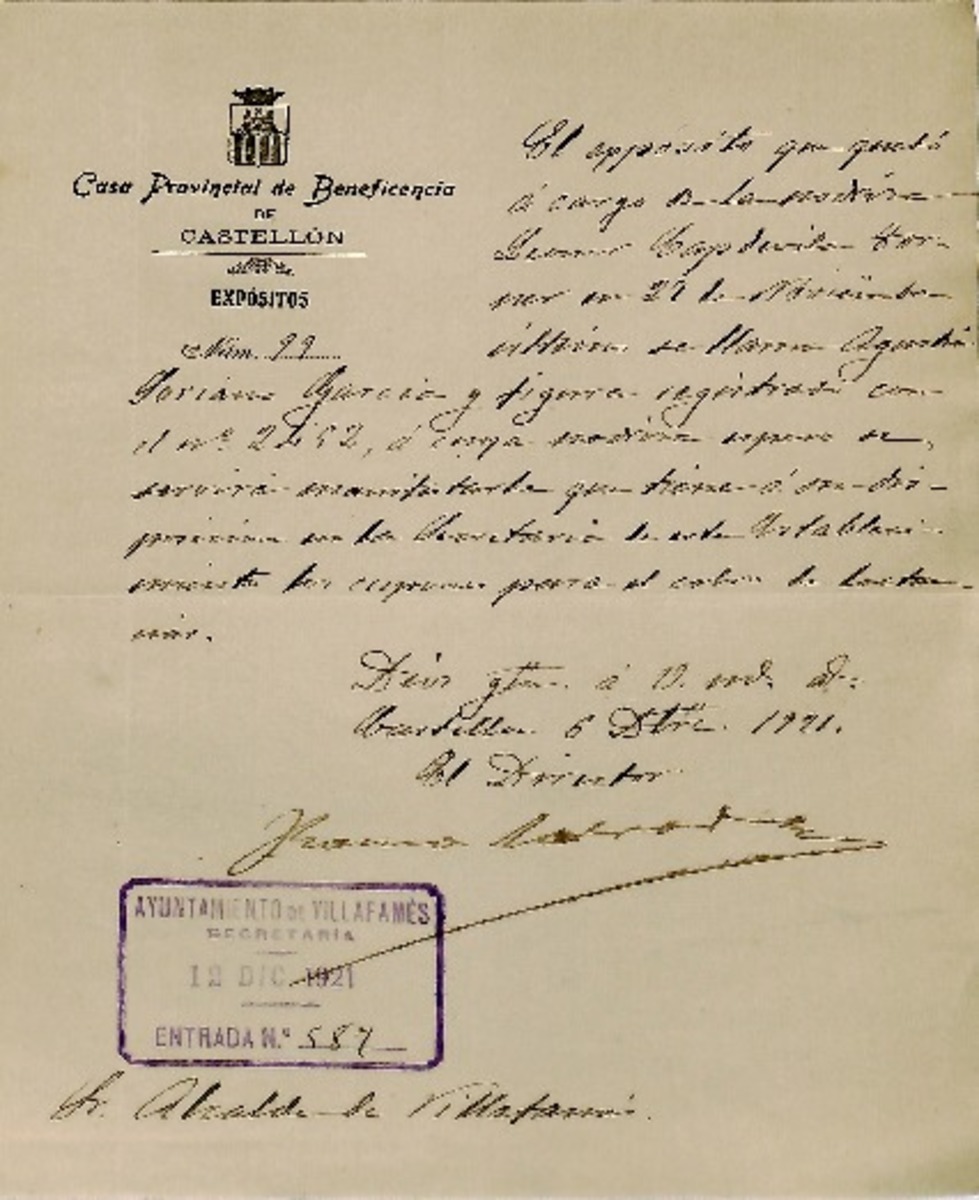 Casa Provincial de Beneficencia
DE
CASTELLÓN
EXPÓSITOS
Núm. 99
El expósito que quedó
á cargo de la nodriza
Leonor Capdevila For-
ner en 29 de Noviembre
último se llama Agustín
Soriano García y figura registrado con
el nº 2452, á cuya nodriza espero se
servirá manifestarle que tiene á su dis-
posición en la Secretaría de este Estableci-
miento los cupones para el cobro de lactan-
cias.
Dios gue. á V. md. a.
Castellón 6 Dbre. 1921.
El Director
AYUNTAMIENTO DE VILLAFAMÉS
SECRETARÍA
12 DIC. 1921
ENTRADA N.º 587
Sr. Alcalde de Villafamés.